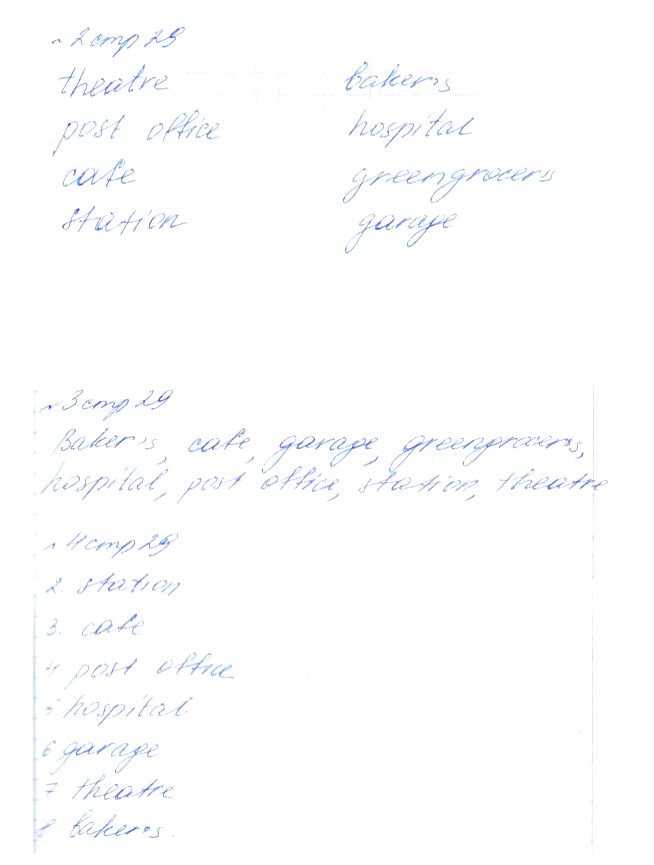 №2 стр 29
theatre
post office
cafe
station
baker's
hospital
greengrocer's
garage
№3 стр 29
Baker's, cafe, garage, greengrocer's,
hospital, post office, station, theatre
№4 стр 29
2. station
3. cafe
4 post office
5 hospital
6 garage
7 theatre
8 baker's.